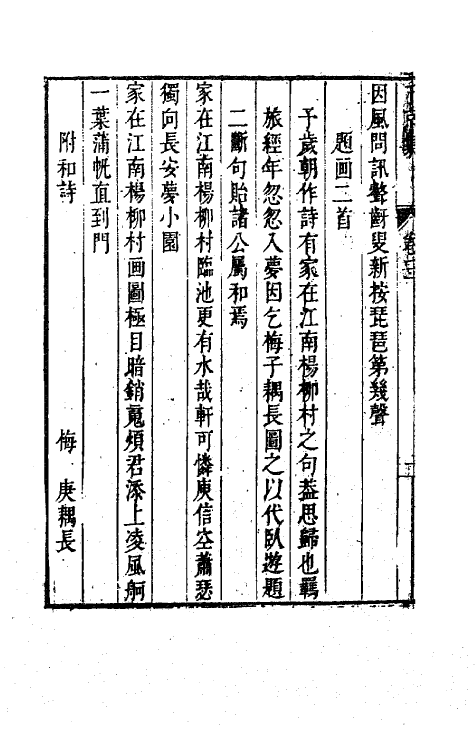 因風問訊聱齖叟新按琵琶第幾聲
題画二首
予歲朝作詩有家在江南楊柳村之句葢思歸也羈
旅經年忽忽入夢因乞梅子耦長圖之以代臥遊題
二斷句貽諸公屬和焉
家在江南楊柳村臨池更有水哉軒可憐庾信空蕭瑟
獨向長安夢小園
家在江南楊柳村画圖極目暗銷䰟煩君添上凌風舸
一葉蒲帆直到門
附和詩
梅 庚耦長